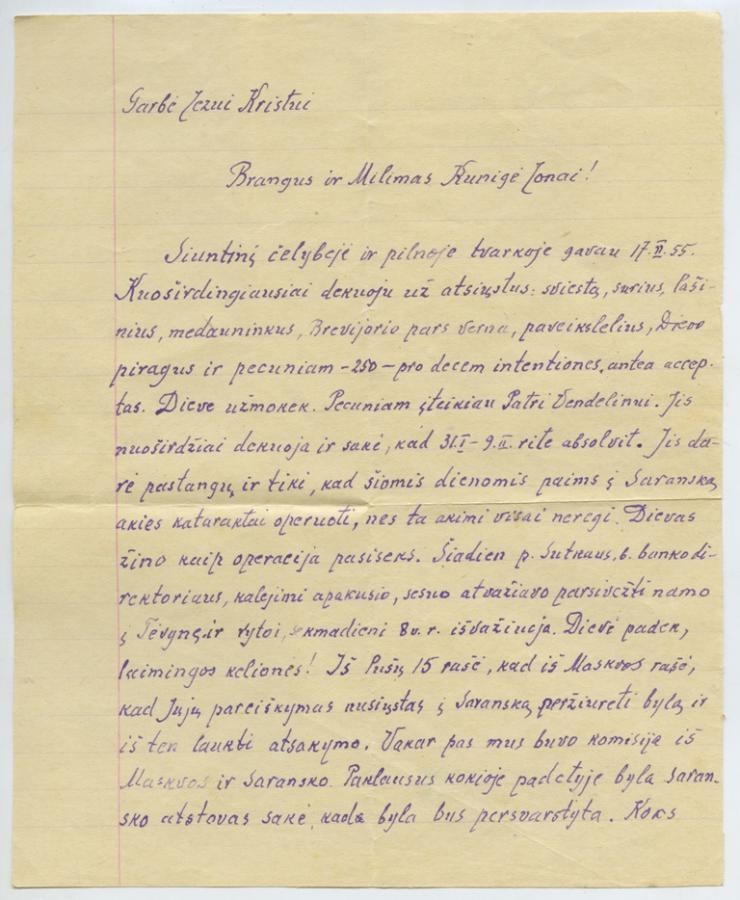 Garbė Jezui Kristui
Brangus ir Milimas Kunigė Jonai!
Siuntinį čelybėje ir pilnoje tvarkoje gavau 17.II.55.
Kuoširdingiausiai dekuoju už atsiųstus: sviestą, surius, laši-
nius, medauninkus, Brevijorio pars verna, paveikslelius, Dievo
piragus ir pecuniam -250- pro decem intentiones, antea accep-
tas. Dieve užmokek. Pecuniam įteikiau Patri Vendelinui. Jis
nuoširdžiai dekuoja ir sakė, kad 31.I-9.II. rite absolvit. Jis da-
rė pastangų ir tiki, kad šiomis dienomis paims į Saranską
akies kataraktai operuoti, nes ta akimi visai neregi. Dievas
žino kaip operacija pasiseks. Šiadien p. Sutkaus, b. banko di-
rektoriaus, kalejimi apakusio, sesuo atvažiavo parsivežti namo
į Tėvynę ir rytoi, sekmadieni 8 v. r. išvažiuoja. Dievė padek,
laimingos keliones! Iš Pušų 15 rašė, kad iš Maskvos rašė,
kad Jųjų pareiškymas nusiųstas į Saranską peržiureti bylą ir
iš ten laukti atsakymo. Vakar pas mus buvo komisija iš
Maskvos ir Saransko. Paklausus kokioje padetyje byla Saran-
sko atstovas sakė, kada byla bus persvarstyta. Koks